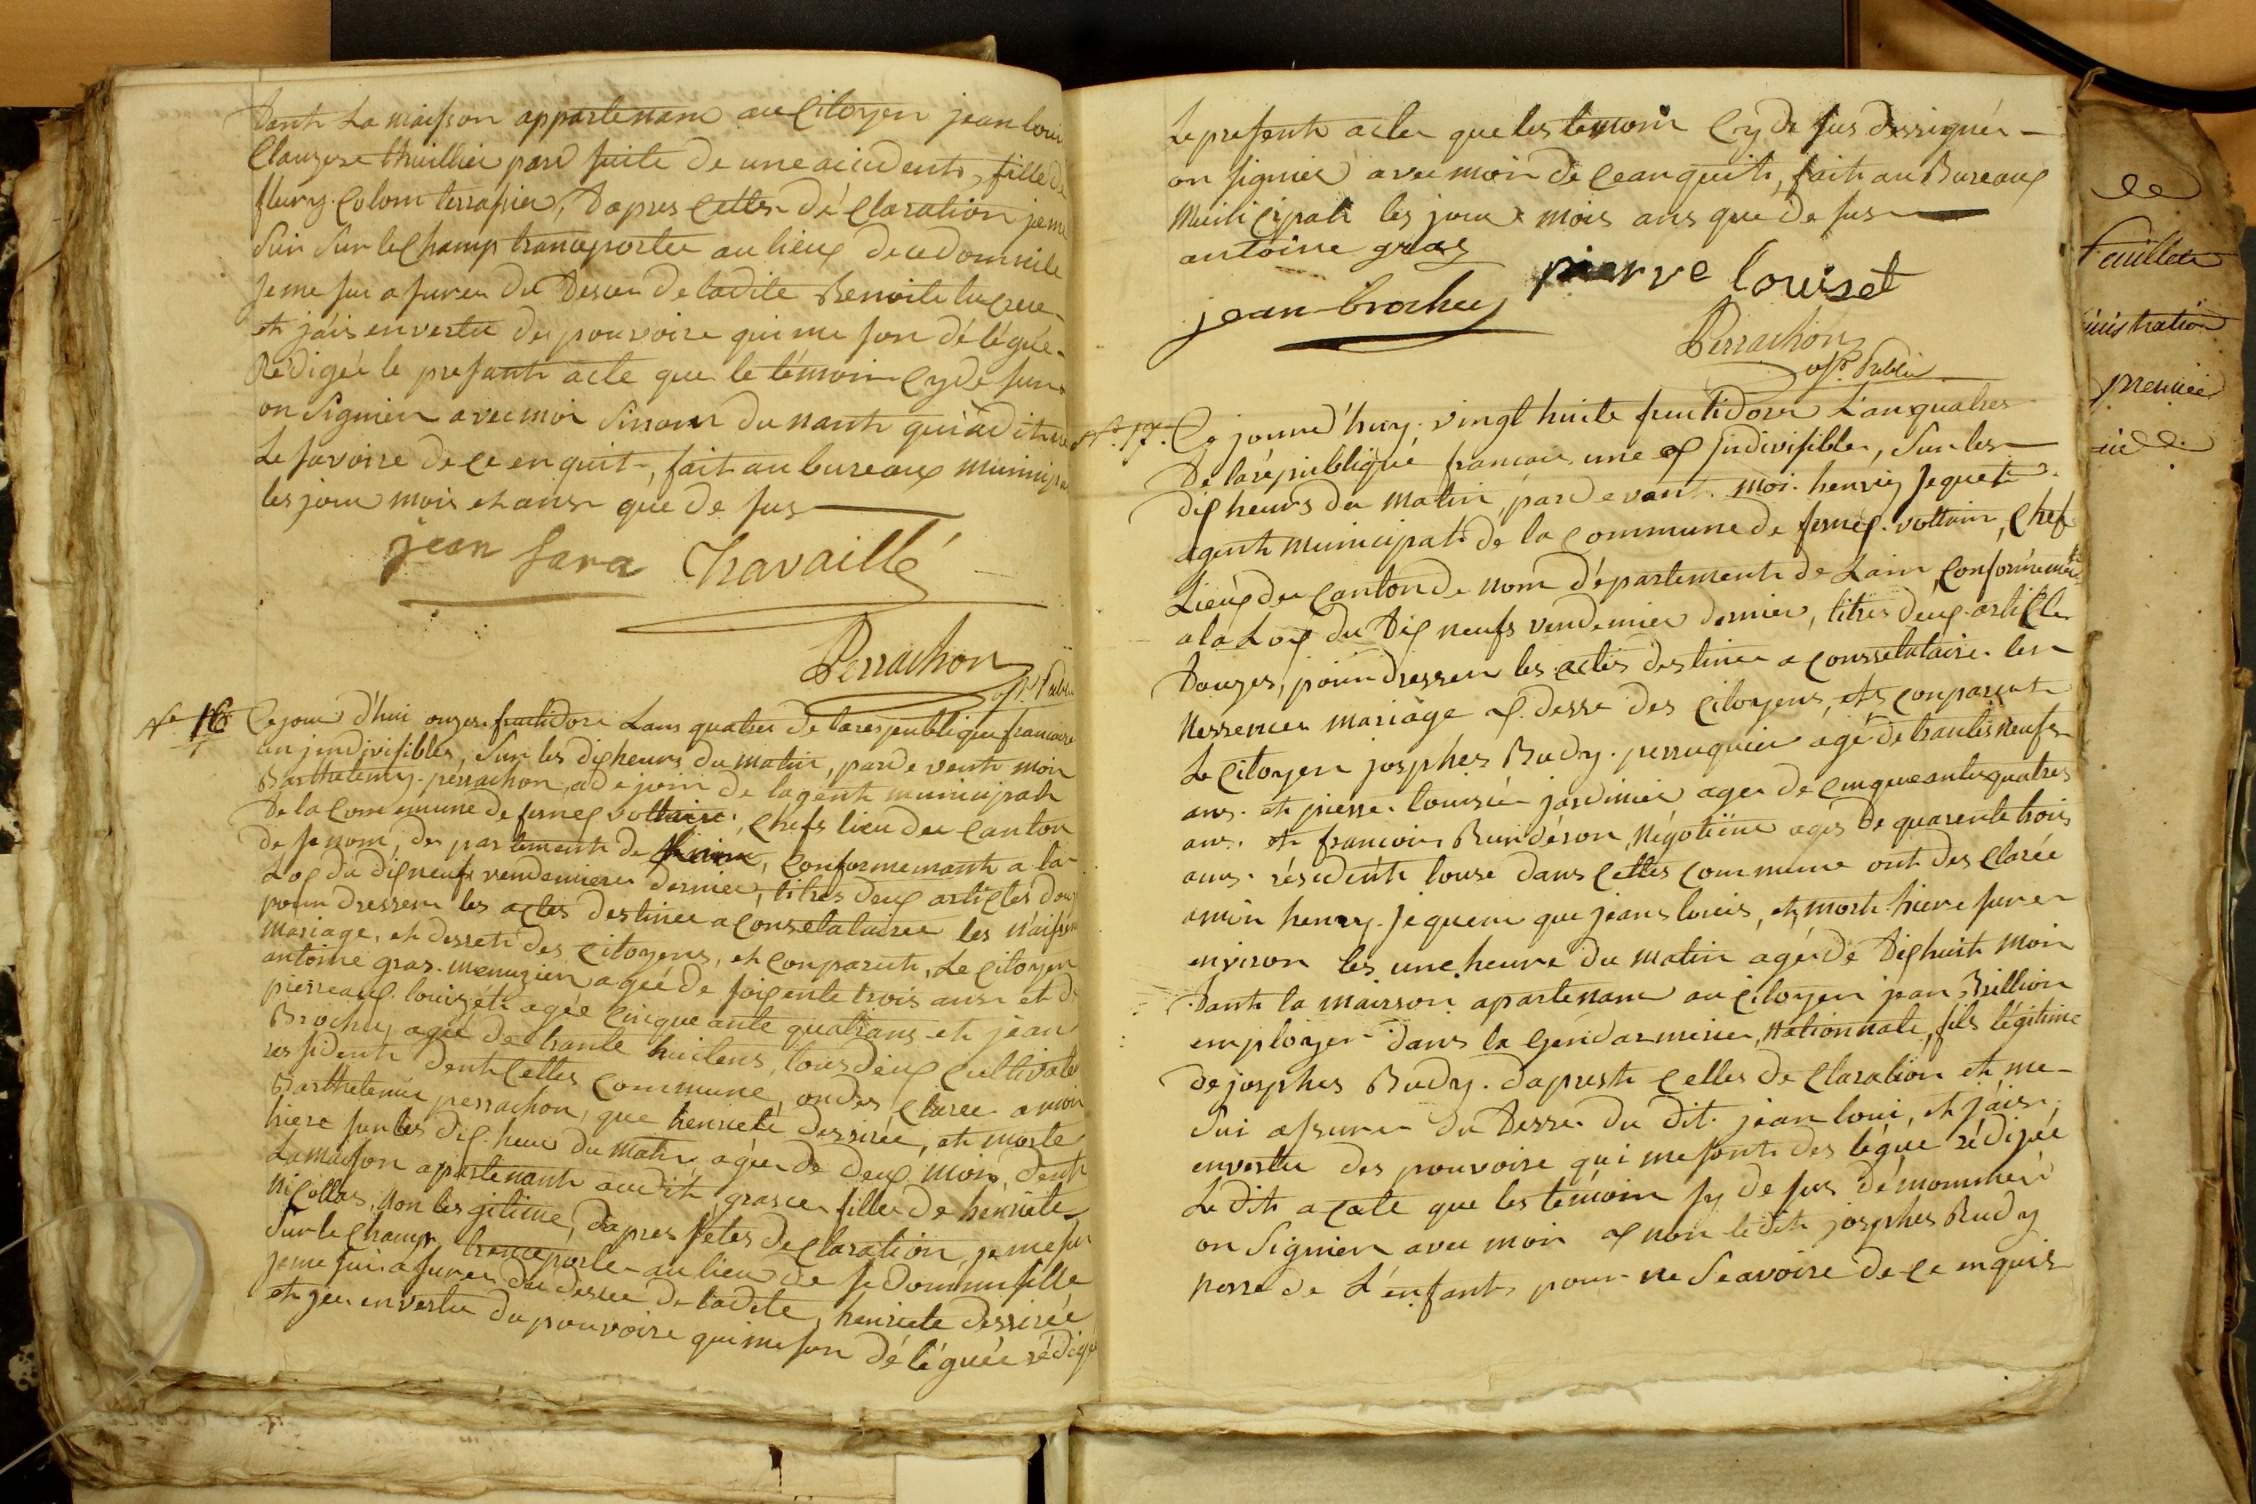 Dant La maison appartenam au Citoyen jean loui
Clauzere thuillier pard suite de une accidents, fille de
fleury Colom terrasier, Dapres Cettes dé Claration je me
Suis Sur le Champ transportee au lieux de ce domicile
je me sui assurer du Desces de ladite Benoite
et jáis en vertu du pouvoire qui me son délégué
Rédigée le presante acte que le témoin Cy de sus
on Signier avec moi du nante qui a dit
Le savoire de ce enquit, fait au bureaux municipa
les jour mois et ans que de sus
jean sara Chavaillé
Perrachon
off. Public
No 16 Ce jour d'hui onzes fructidore Lans quatres de la respublique francaise
un jndjvisibles, Sur les dix heurs du matin, par de vent moi
Barthelemy perrachon, ade join de lagent municipale
De la Commune de fernex voltaire, Chefs lieu du Canton
de se nom, de partements de , Conformemante a la
Loy du dixneufs vendemiere dernier, titres deux articles douz
pour dressere les actes destinee a Constataires les naisen
mariage, et desset des Citoyens, et Conparute, Le Citoyen
antoine gras menuzien agée de soixente trois ans et de
pierreaux louiset agée Cinqueante quatrans et jean
Brochu agée de trante huitens, tous deux Cultivate
residente dent Cettes Commune, on des Claree a moi
Barthelemie perrachon, que henriete dessirée, et morte
hiere sur les dix heur du matin agée de deux mois, Dent
La maison apartenante audit grasce fille de henriete
nicollas, non les gitime, dapres setes De Claration, je me sui
Sur le Champ transporte au lieu de se dommisille
je me sui assurer du desces de ladite, henriete dessirée
et jee en vertu du pouvoire qui me son déléguée rédige
Le presente actes que les temoin Cy de sus dessignér
on signier avec moi de Ce anquit, fait au Bureaux
Municipale les jour mois ans que de sus
antoine gras
pierre louiset
jean brochu
Perrachon
off. Public
No 17. Ce jourd'huy vingt huite fructidore L'an quatres
De la république francais une et jndivisibles, Sur les
dix heurs du matin, pardevant moi henriy Jequet
agente municipale de la Commune de fernex voltaire, Chef
Lieux du Canton de nom département de Lain, Conformément
a la Loy du dix neufs vendemier dernier, titres deux article
Douzes, pour dresser les actes destinee a Conssetataire les
nessences mariage et desse des Citoyens, et Conparut
Le Citoyen josphes Budry perruquier agé de trantes neufs
ans et pierre louisée jardinier ager de Cinqueantes quatres
ans et francois Rundéron, Négotiine agés de quarente trois
ans résidente dans Cettes Commune ont des Clarée
a moi henry Jequem que jeans louis, et morte hiere
environ les une heure du matin agé de dix huit mois
Dant la maisson apartenant au Citoyen jean Brillion
employer dans la Gendarmerier, nationnale, fils légitime
de josphes Budry. dapreste Celles de Claration et me
Sui assurer du Desse du dit jean loui, et jáis
en vertu des pouvoire qui me sont des légue rédigée
Le dit acate que les temoin sy de sus démommer
on Signier avec moi et non le dit josphes Budry
perre de L'enfant pour ne Seavoire de Ce enquis
ee
feuillets
inistration
premiée